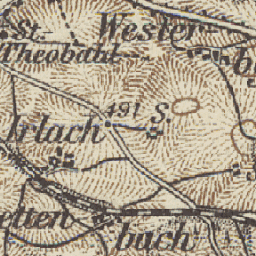 St. Wester
Theobald
491 S.
Irlach
etten
bach